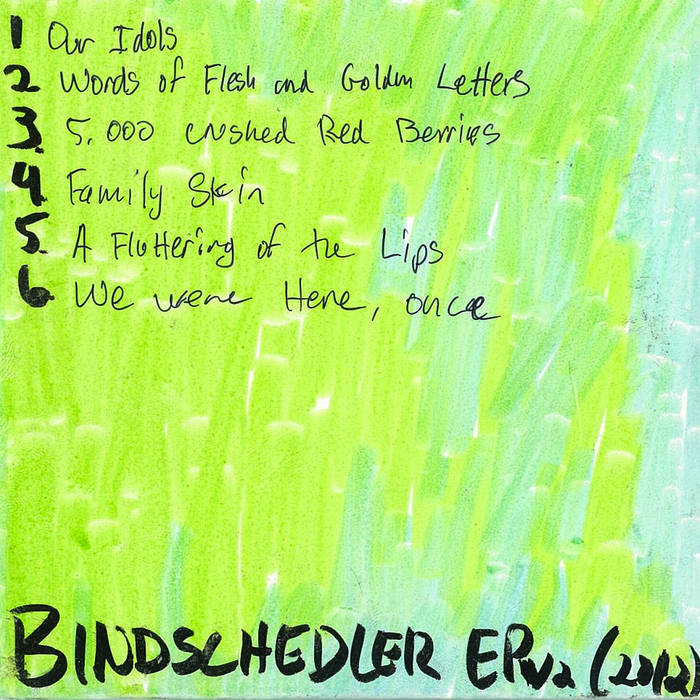 1 Our Idols
2 Words of Flesh and Golden Letters
3. 5,000 crushed Red Berries
4. Family Skin
5. A Fluttering of the Lips
6. We were Here, once
BINDSCHEDLER EPv2 (2012)